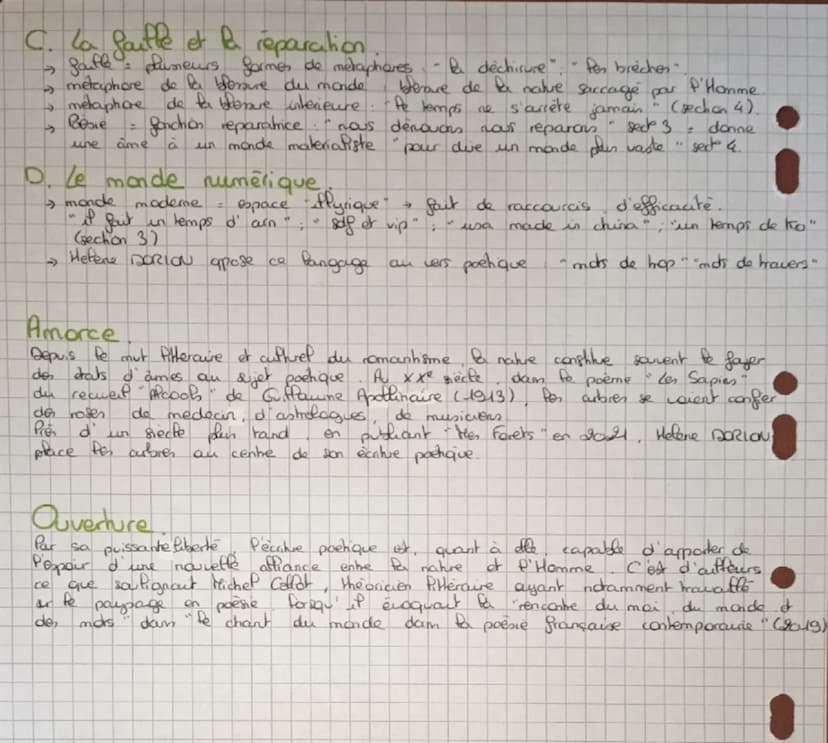 C. La faille et la réparation.
→ faille = plusieurs formes de métaphores "la déchirure", "les brèches"
→ métaphore de la blessure du monde, blessure de la nature saccagé par l'Homme
→ métaphore de la blessure intérieure : "le temps ne s'arrête jamais" (section 4).
→ Poésie = fonction réparatrice "nous dénouons nous réparons" sect° 3 = donne
une âme à un monde matérialiste "pour dire un monde plus vaste" sect° 4.
D. Le monde numérique.
→ monde moderne = espace "illyrique" → fait de raccourcis, d'efficacité.
"il fait un temps d'arn" ; "sdf et vip" ; "usa made in china" ; "un temps de ko"
(section 3)
→ Hélène DORION oppose ce langage au vers poétique : "mots de hop" "mots de travers"
Amorce.
Depuis le mvt littéraire et culturel du romantisme, la nature constitue souvent le foyer
des états d'âmes au sujet poétique. Au XXe siècle, dans le poème "Les Sapins"
du recueil "Alcools" de Guillaume Apollinaire (1913), les arbres se voient confier
des roles de médecin, d'astrologues, de musiciens.
Près d'un siècle plus tard, en publiant "Mes Forêts" en 2021, Hélène DORION
place les arbres au centre de son écriture poétique.
Ouverture.
Par sa puissante liberté, l'écriture poétique est, quant à elle, capable d'apporter de
l'espoir d'une nouvelle alliance entre la nature et l'Homme. C'est d'ailleurs
ce que soulignait Michel Collot, théoricien littéraire ayant notamment travaillé
sur le paysage en poésie lorsqu'il évoquait la "rencontre du moi, du monde et
des mots" dans "le chant du monde dans la poésie française contemporaine" (2019)